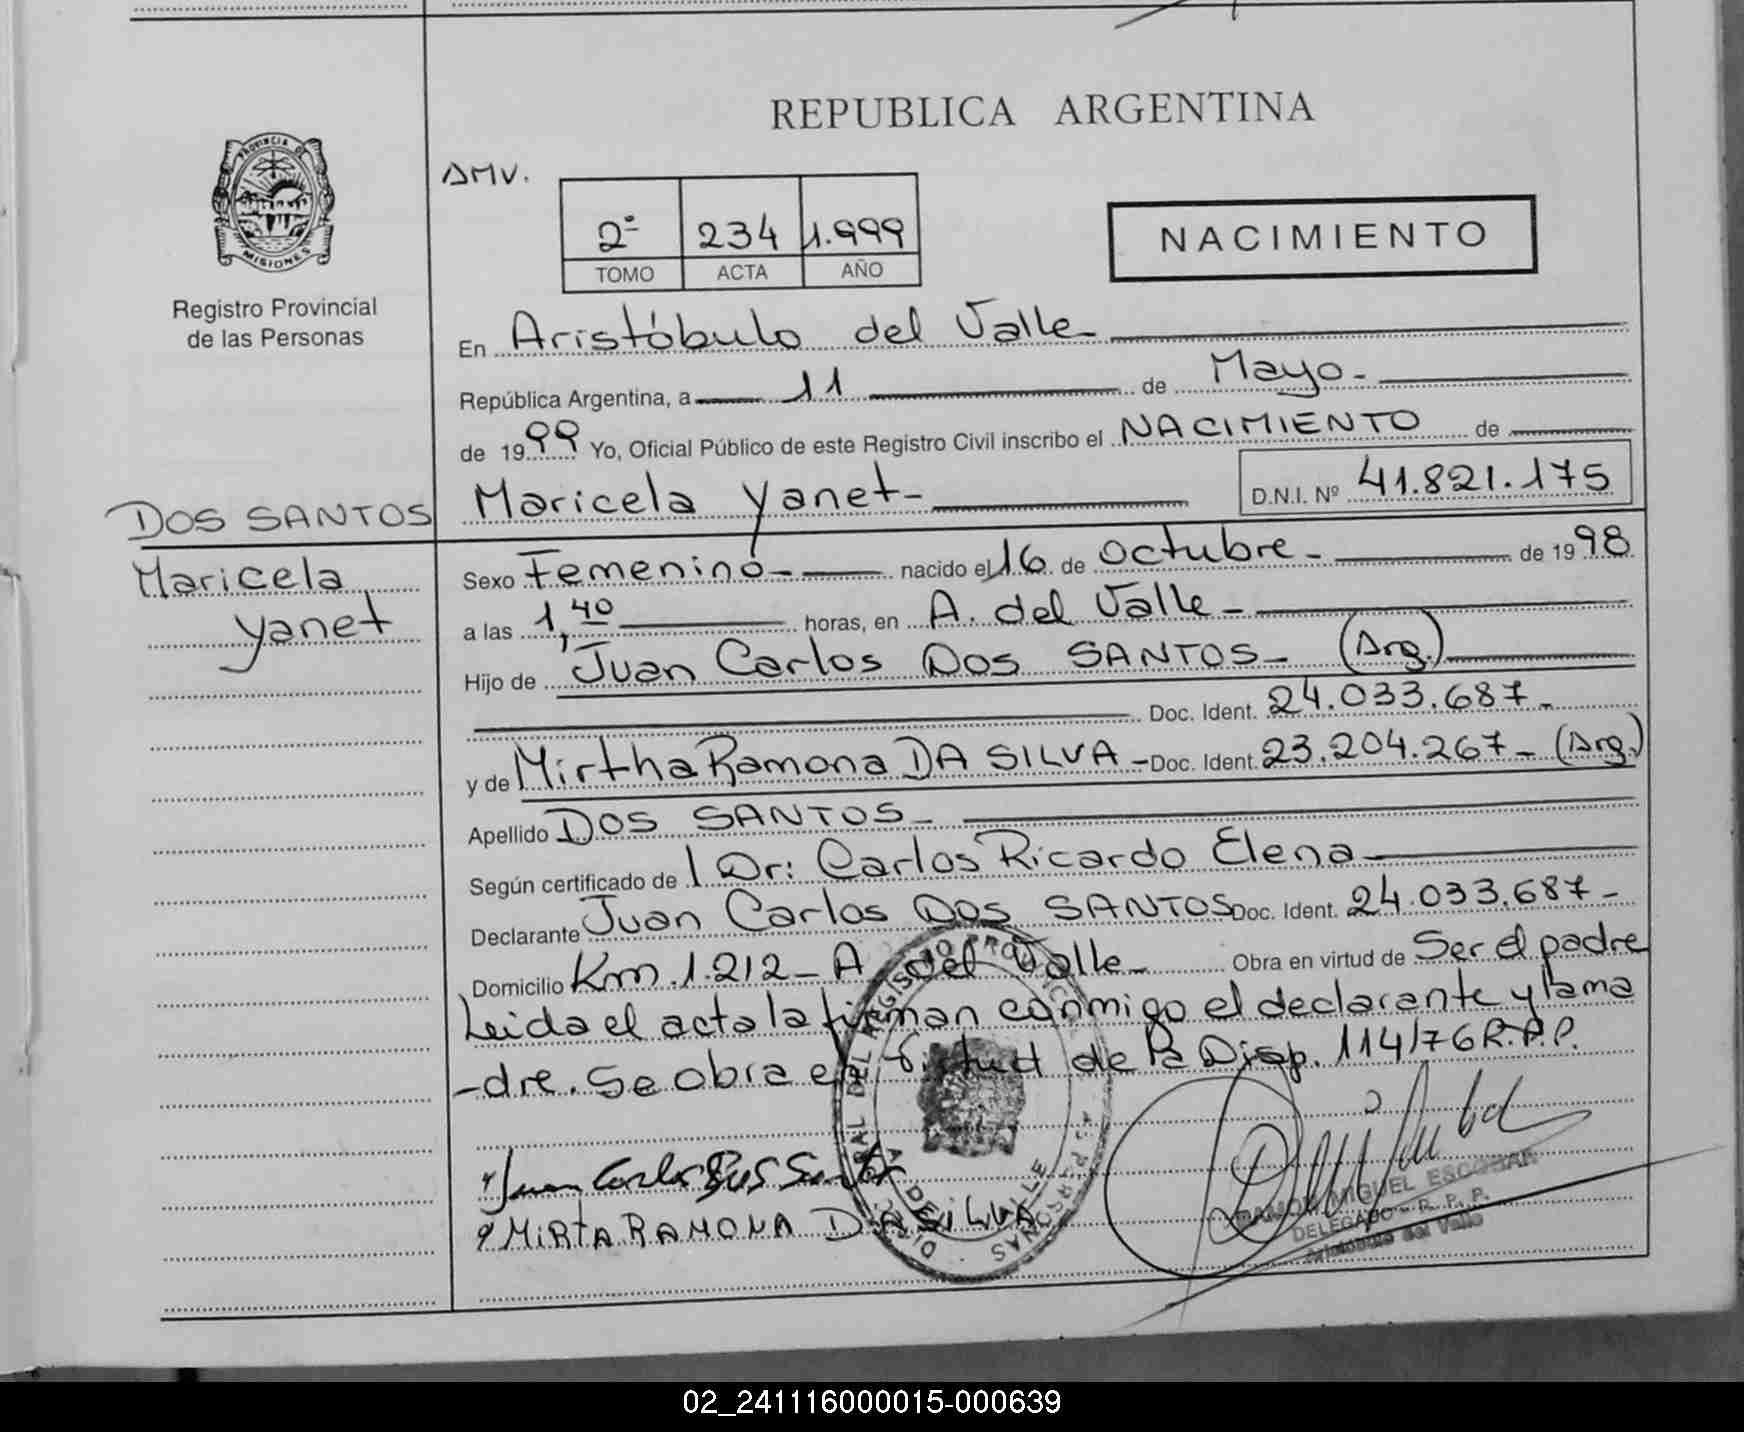 REPUBLICA ARGENTINA
PROVINCIA DE
MISIONES
Registro Provincial
de las Personas
AMV.
2º 234 1.999
TOMO ACTA AÑO
NACIMIENTO
En Aristóbulo del Valle
República Argentina, a 11 de Mayo.
de 1999 Yo, Oficial Público de este Registro Civil inscribo el NACIMIENTO de
Maricela Yanet- D.N.I. Nº 41.821.175
DOS SANTOS
Maricela
Yanet
Sexo Femenino- nacido el 16 de Octubre- de 1998
a las 1,40 horas, en A. del Valle-
Hijo de Juan Carlos DOS SANTOS- (Arg.)
Doc. Ident. 24.033.687-
y de Mirtha Ramona DA SILVA- Doc. Ident. 23.204.267- (Arg.)
Apellido DOS SANTOS-
Según certificado de Dr: Carlos Ricardo Elena-
Declarante Juan Carlos DOS SANTOS Doc. Ident. 24.033.687-
Domicilio Km. 1.212- A. del Valle- Obra en virtud de Ser el padre
Leida el acta la firman conmigo el declarante y la ma
-dre. Se obra en virtud de la Disp. 114/76 R.P.P.
Juan Carlos Dos Santos
MiRTA RAMONA DASiLVA
RAMON MIGUEL ESCOBAR
DELEGADO - R. P. P.
Aristóbulo del Valle
02_241116000015-000639